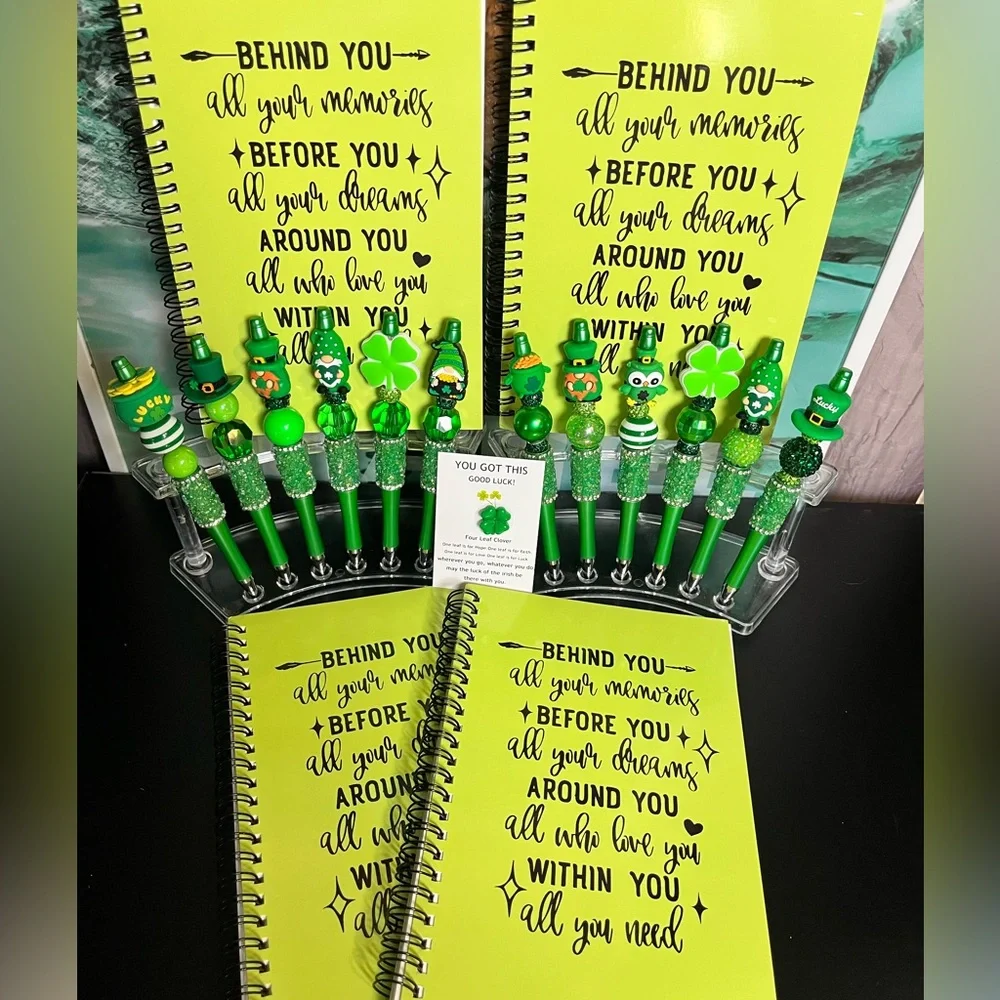 BEHIND YOU
all your memories
BEFORE YOU
all your dreams
AROUND YOU
all who love you
WITHIN YOU
all
BEHIND YOU
all your memories
BEFORE YOU
all your dreams
AROUND YOU
all who love you
WITHIN YOU
LUCKY
Lucky
YOU GOT THIS
GOOD LUCK!
Four Leaf Clover
One leaf is for Hope One leaf is for Faith
One leaf is for Love One leaf is for Luck
wherever you go, whatever you do
may the luck of the irish be
there with you.
BEHIND YOU
all your mem
BEFORE
all your
AROUN
all who
WIT
all
BEHIND YOU
all your memories
BEFORE YOU
all your dreams
AROUND YOU
all who love you
WITHIN YOU
all you need